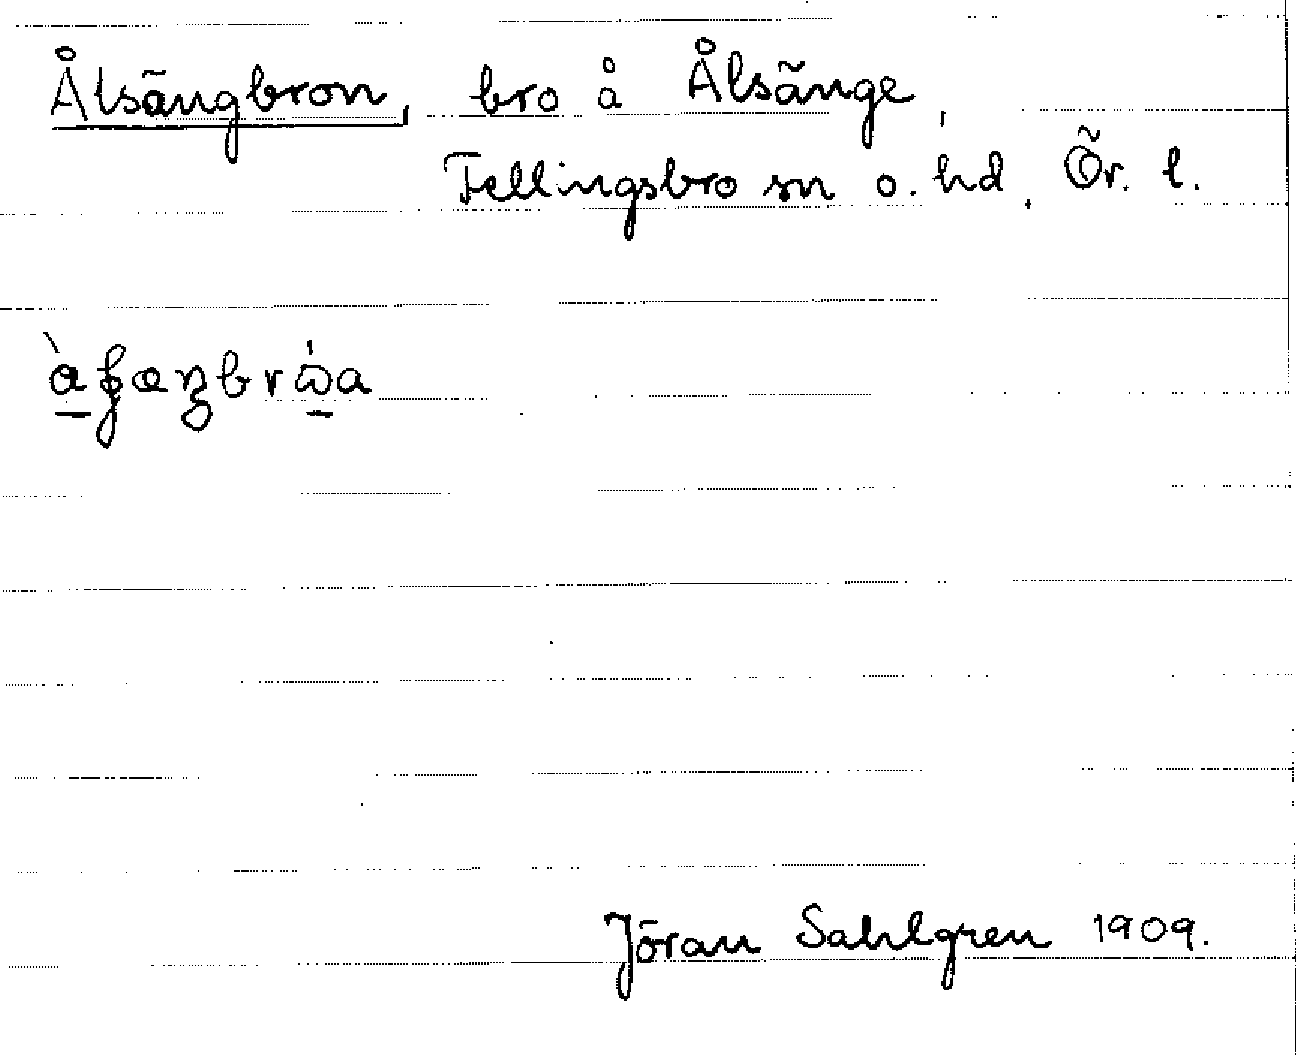 Ålsängbron, bro å Ålsänge,
Fellingsbro sn o. hd, Ör. l.
Jöran Sahlgren 1909.